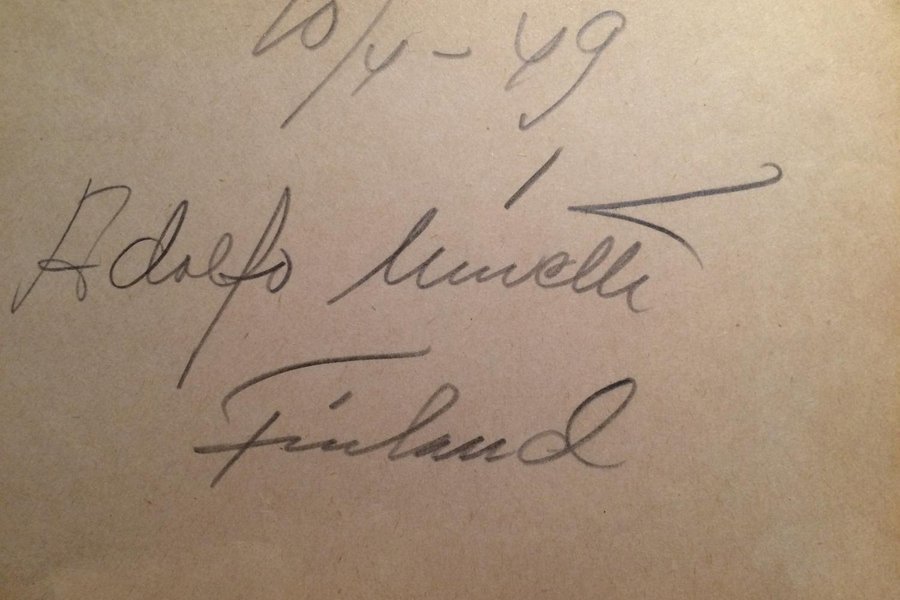 10/4-49
Adolfo
Finland